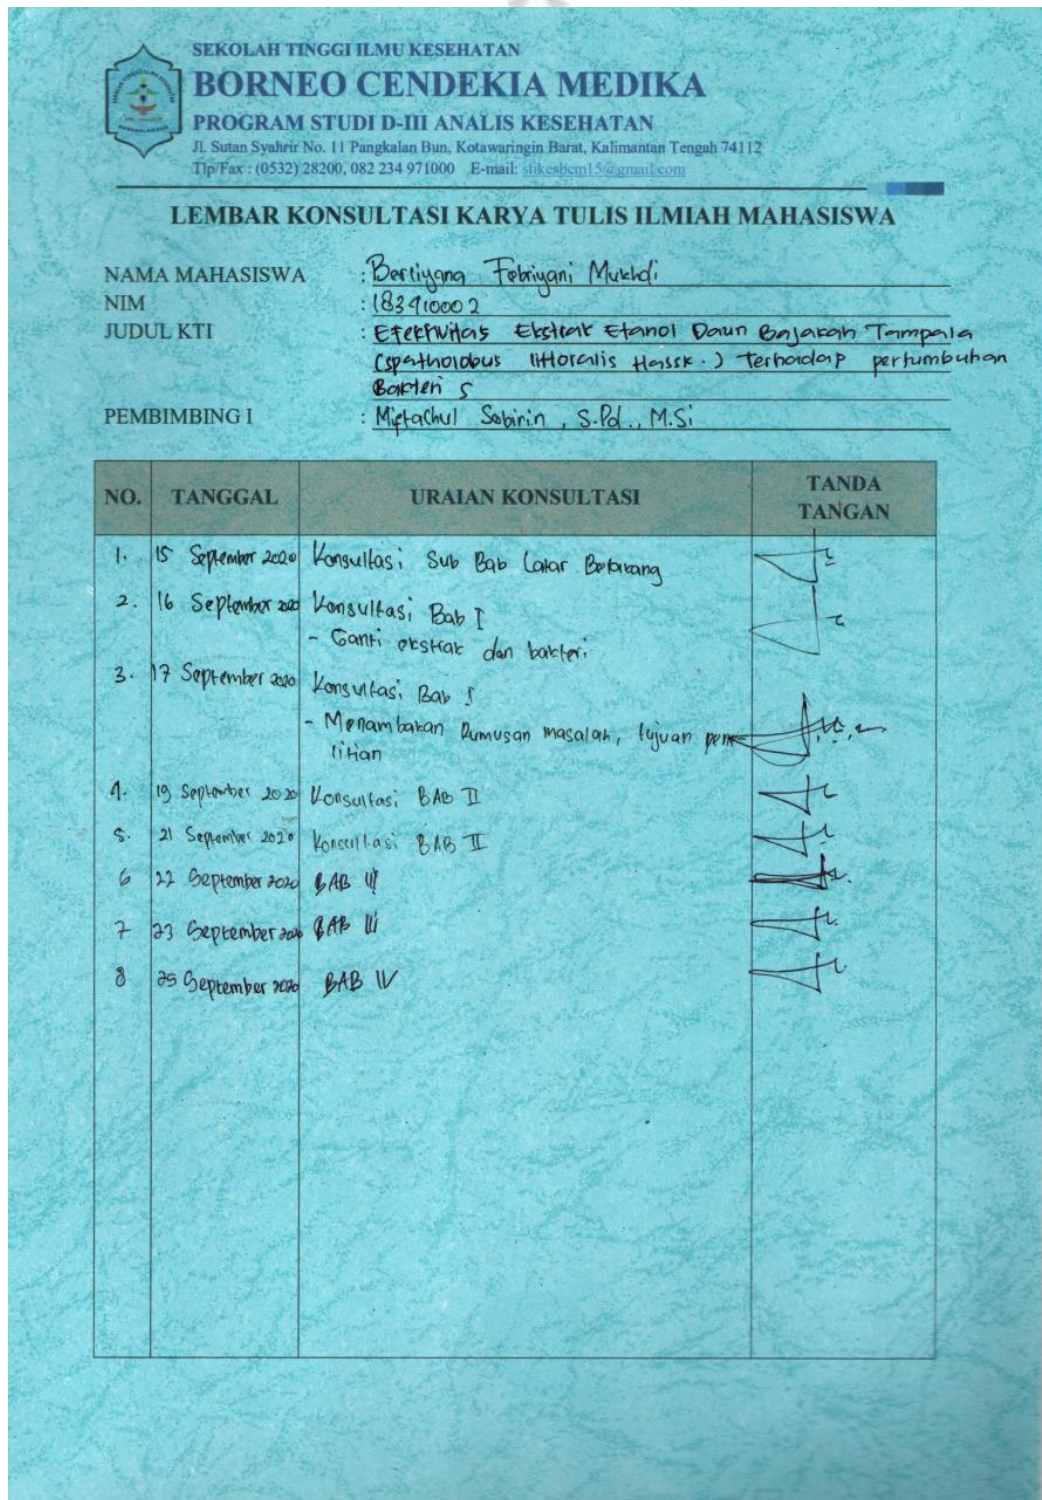 SEKOLAH TINGGI ILMU KESEHATAN
BORNEO CENDEKIA MEDIKA
PROGRAM STUDI D-III ANALIS KESEHATAN
Jl. Sutan Syahrir No. 11 Pangkalan Bun, Kotawaringin Barat, Kalimantan Tengah 74112
Tlp/Fax : (0532) 28200, 082 234 971000 E-mail: stikesbcm15@gmail.com
LEMBAR KONSULTASI KARYA TULIS ILMIAH MAHASISWA
NAMA MAHASISWA : Berliyana Febriyani Mukhdi
NIM : 183410002
JUDUL KTI : Efektivitas Ekstrak Etanol Daun Bajakah Tampala
(spatholobus littoralis Hassk.) terhadap pertumbuhan
Bakteri S
PEMBIMBING I : Miftachul Sobirin, S.Pd., M.Si
NO. TANGGAL URAIAN KONSULTASI TANDA TANGAN
1. 15 September 2020 Konsultasi Sub Bab Latar Belakang
2. 16 September 2020 Konsultasi Bab I
- Ganti ekstrak dan bakteri
3. 17 September 2020 Konsultasi Bab I
- Menambakan Rumusan masalah, tujuan pene
litian
4. 19 September 2020 Konsultasi BAB II
5. 21 September 2020 Konsultasi BAB II
6 22 September 2020 BAB
7 23 September 2020 BAB III
8 25 September 2020 BAB IV